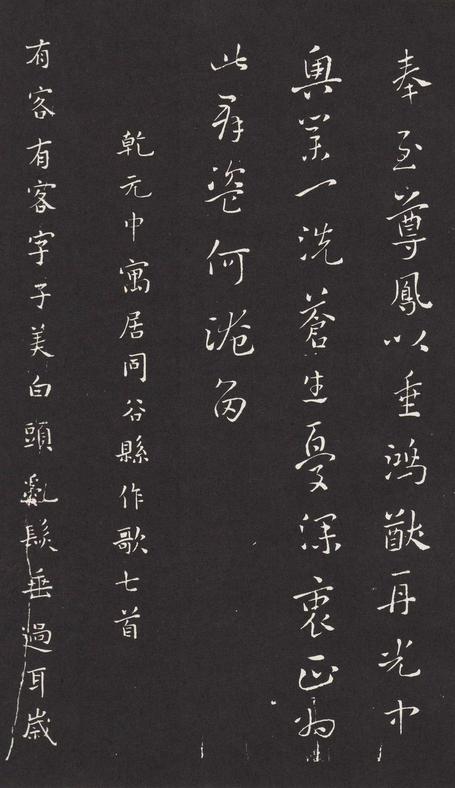 奉至尊鳳以垂鴻猷再光中
興業一洗蒼生憂深衷正為
此群盜何淹留
乾元中寓居同谷縣作歌七首
有客有客字子美白頭亂髮垂過耳歲